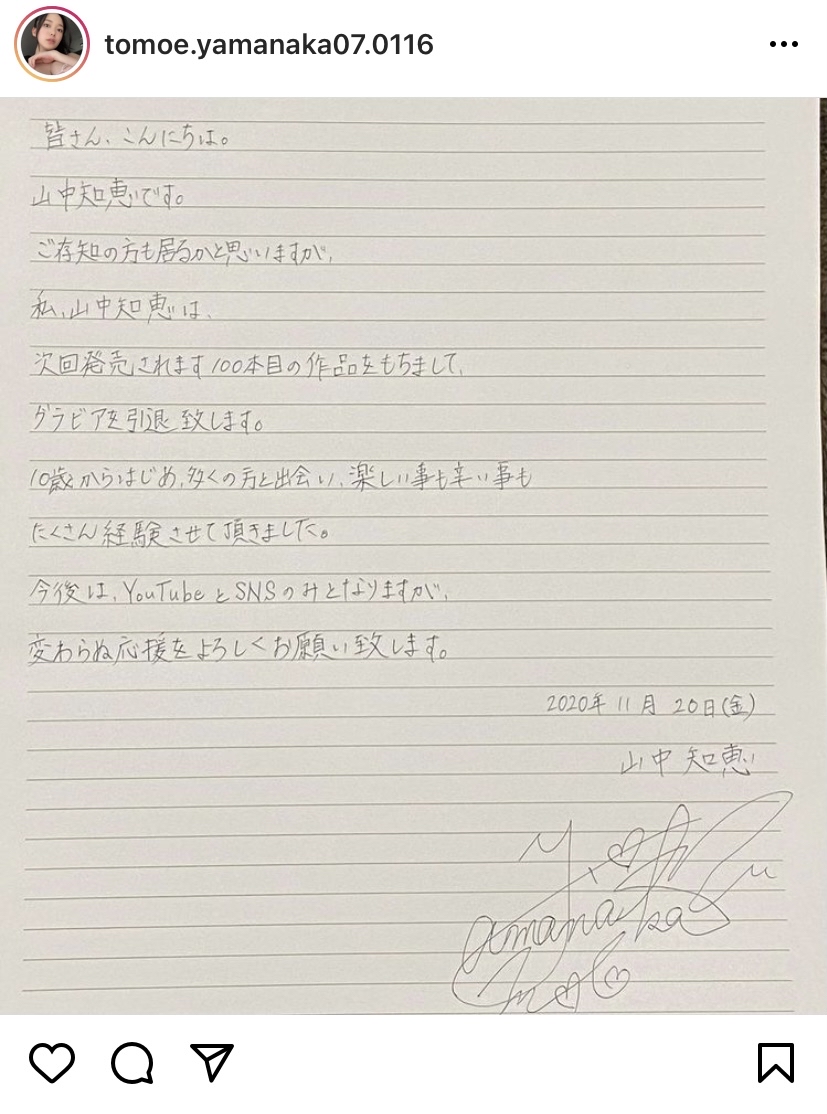 tomoe.yamanaka07.0116
皆さん、こんにちは。
山中知恵です。
ご存知の方も居るかと思いますが、
私、山中知恵は、
次回発売されます100本目の作品をもちまして、
グラビアを引退致します。
10歳からはじめ、多くの方と出会い、楽しい事も辛い事も
たくさん経験させて頂きました。
今後は、YouTubeとSNSのみとなりますが、
変わらぬ応援をよろしくお願い致します。
2020年11月20日(金)
山中知恵